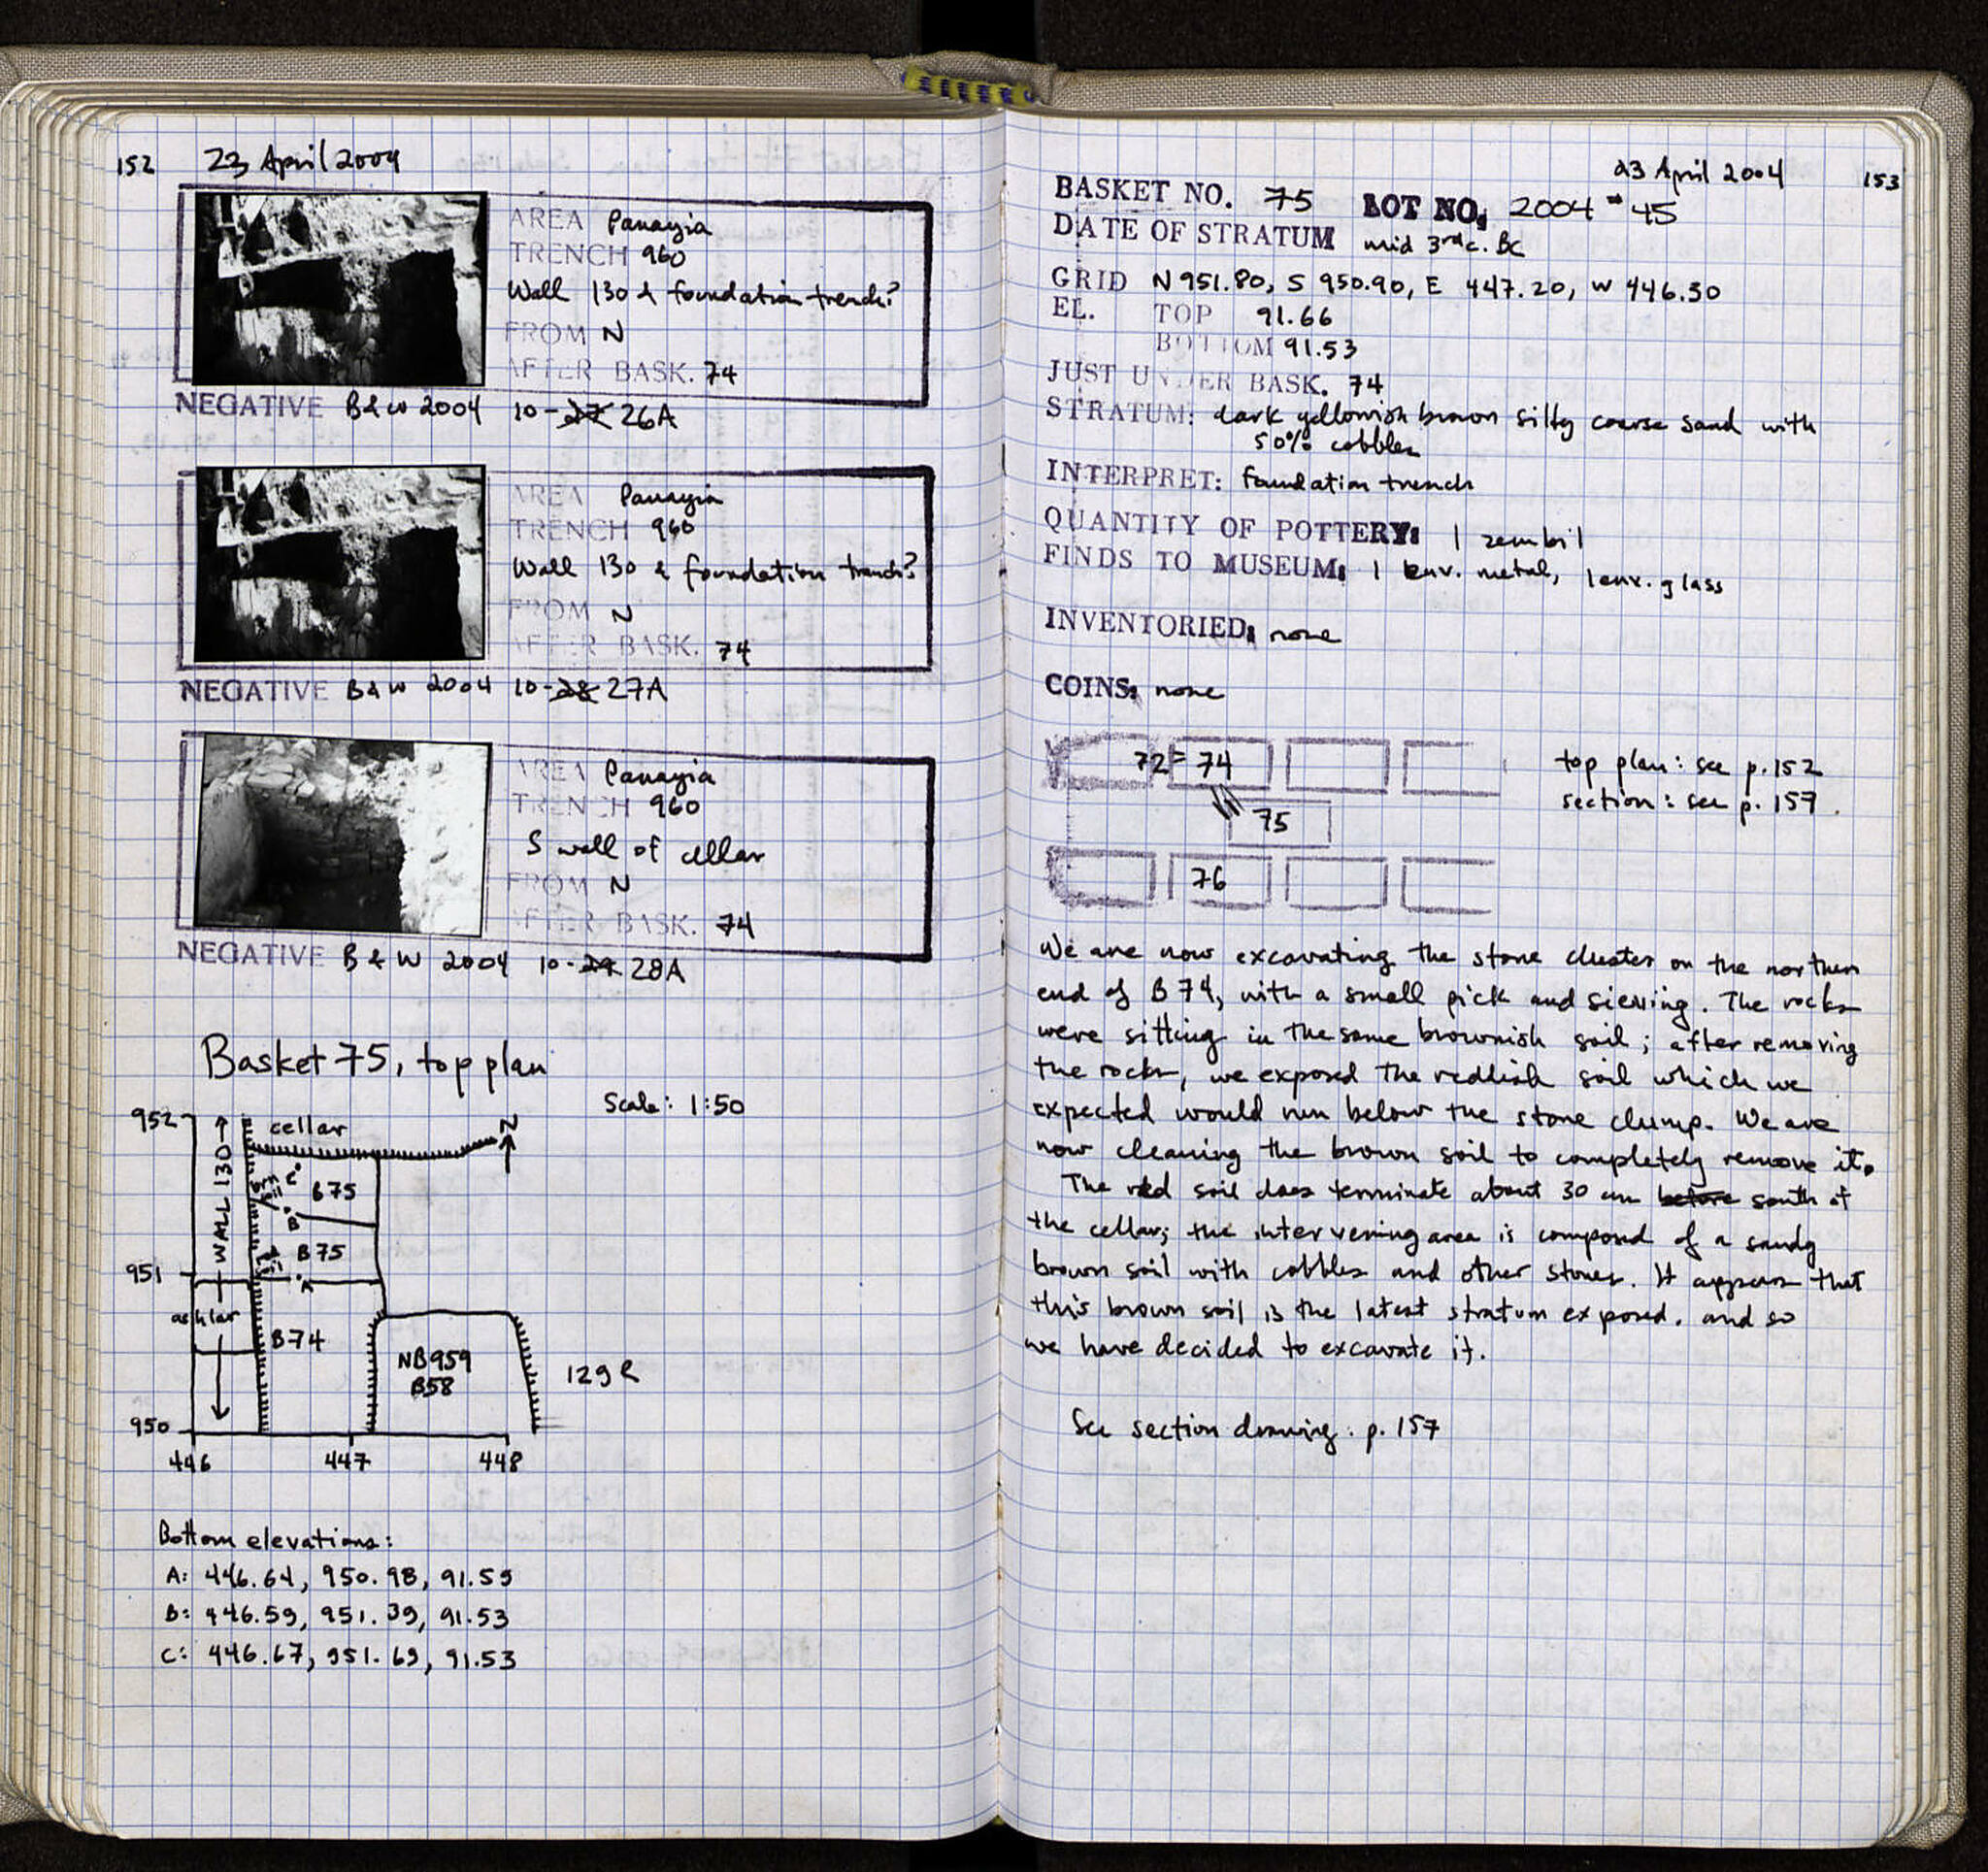 152 23 April 2004
AREA Panayia
TRENCH 960
Wall 130 & foundation trench?
FROM N
AFTER BASK. 74
NEGATIVE B & W 2004 10-27 26A
AREA Panayia
TRENCH 960
Wall 130 & foundation trench?
FROM N
AFTER BASK. 74
NEGATIVE B & W 2004 10-28 27A
AREA Panayia
TRENCH 960
S wall of cellar
FROM N
AFTER BASK. 74
NEGATIVE B & W 2004 10-29 28A
Basket 75, top plan
Scale: 1:50
952
cellar
N
WALL 130
C
B75
B
B75
951
A
ashlar
B74
NB959
B58
129 R
950
446 447 448
Bottom elevations:
A: 446.64, 950.98, 91.55
B: 446.59, 951.39, 91.53
C: 446.67, 951.69, 91.53
23 April 2004 153
BASKET NO. 75 LOT NO. 2004-45
DATE OF STRATUM mid 3rd c. BC
GRID N 951.80, S 950.90, E 447.20, W 446.30
EL. TOP 91.66
BOTTOM 91.53
JUST UNDER BASK. 74
STRATUM: dark yellowish brown silty coarse sand with
50% cobbles
INTERPRET: foundation trench
QUANTITY OF POTTERY: 1 zembil
FINDS TO MUSEUM: 1 env. metal, 1 env. glass
INVENTORIED: none
COINS: none
72 = 74
75
76
top plan: see p. 152
section: see p. 157.
We are now excavating the stone cluster on the northern
end of B 74, with a small pick and sieving. The rocks
were sitting in the same brownish soil; after removing
the rocks, we exposed the reddish soil which we
expected would run below the stone clump. We are
now cleaning the brown soil to completely remove it.
The red soil does terminate about 30 cm before south of
the cellar; the intervening area is composed of a sandy
brown soil with cobbles and other stones. It appears that
this brown soil is the latest stratum exposed, and so
we have decided to excavate it.
See section drawing: p. 157